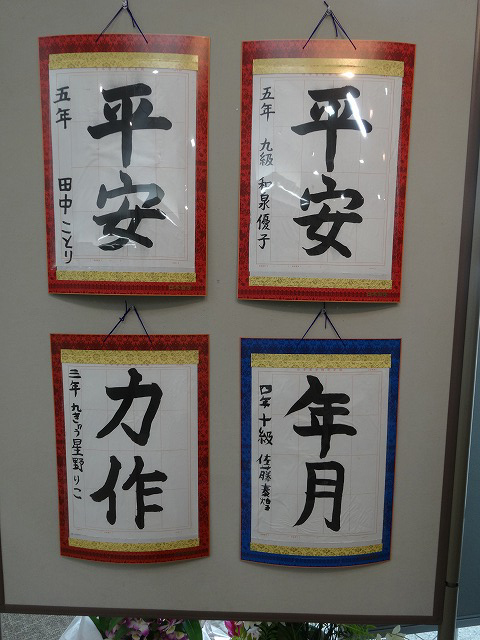 平安
五年 九級 和泉優子
平安
五年 田中ことり
年月
四年 十級 佐藤
力作
三年 九きゅう 星野りこ